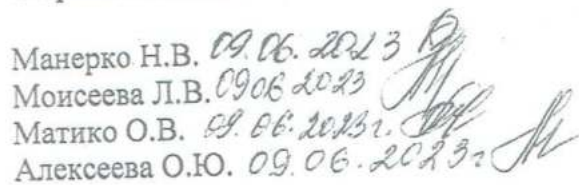 Манерко Н.В. 09.06.2023
Моисеева Л.В. 0906 2023
Матико О.В. 09.06.2023г.
Алексеева О.Ю. 09.06.2023г